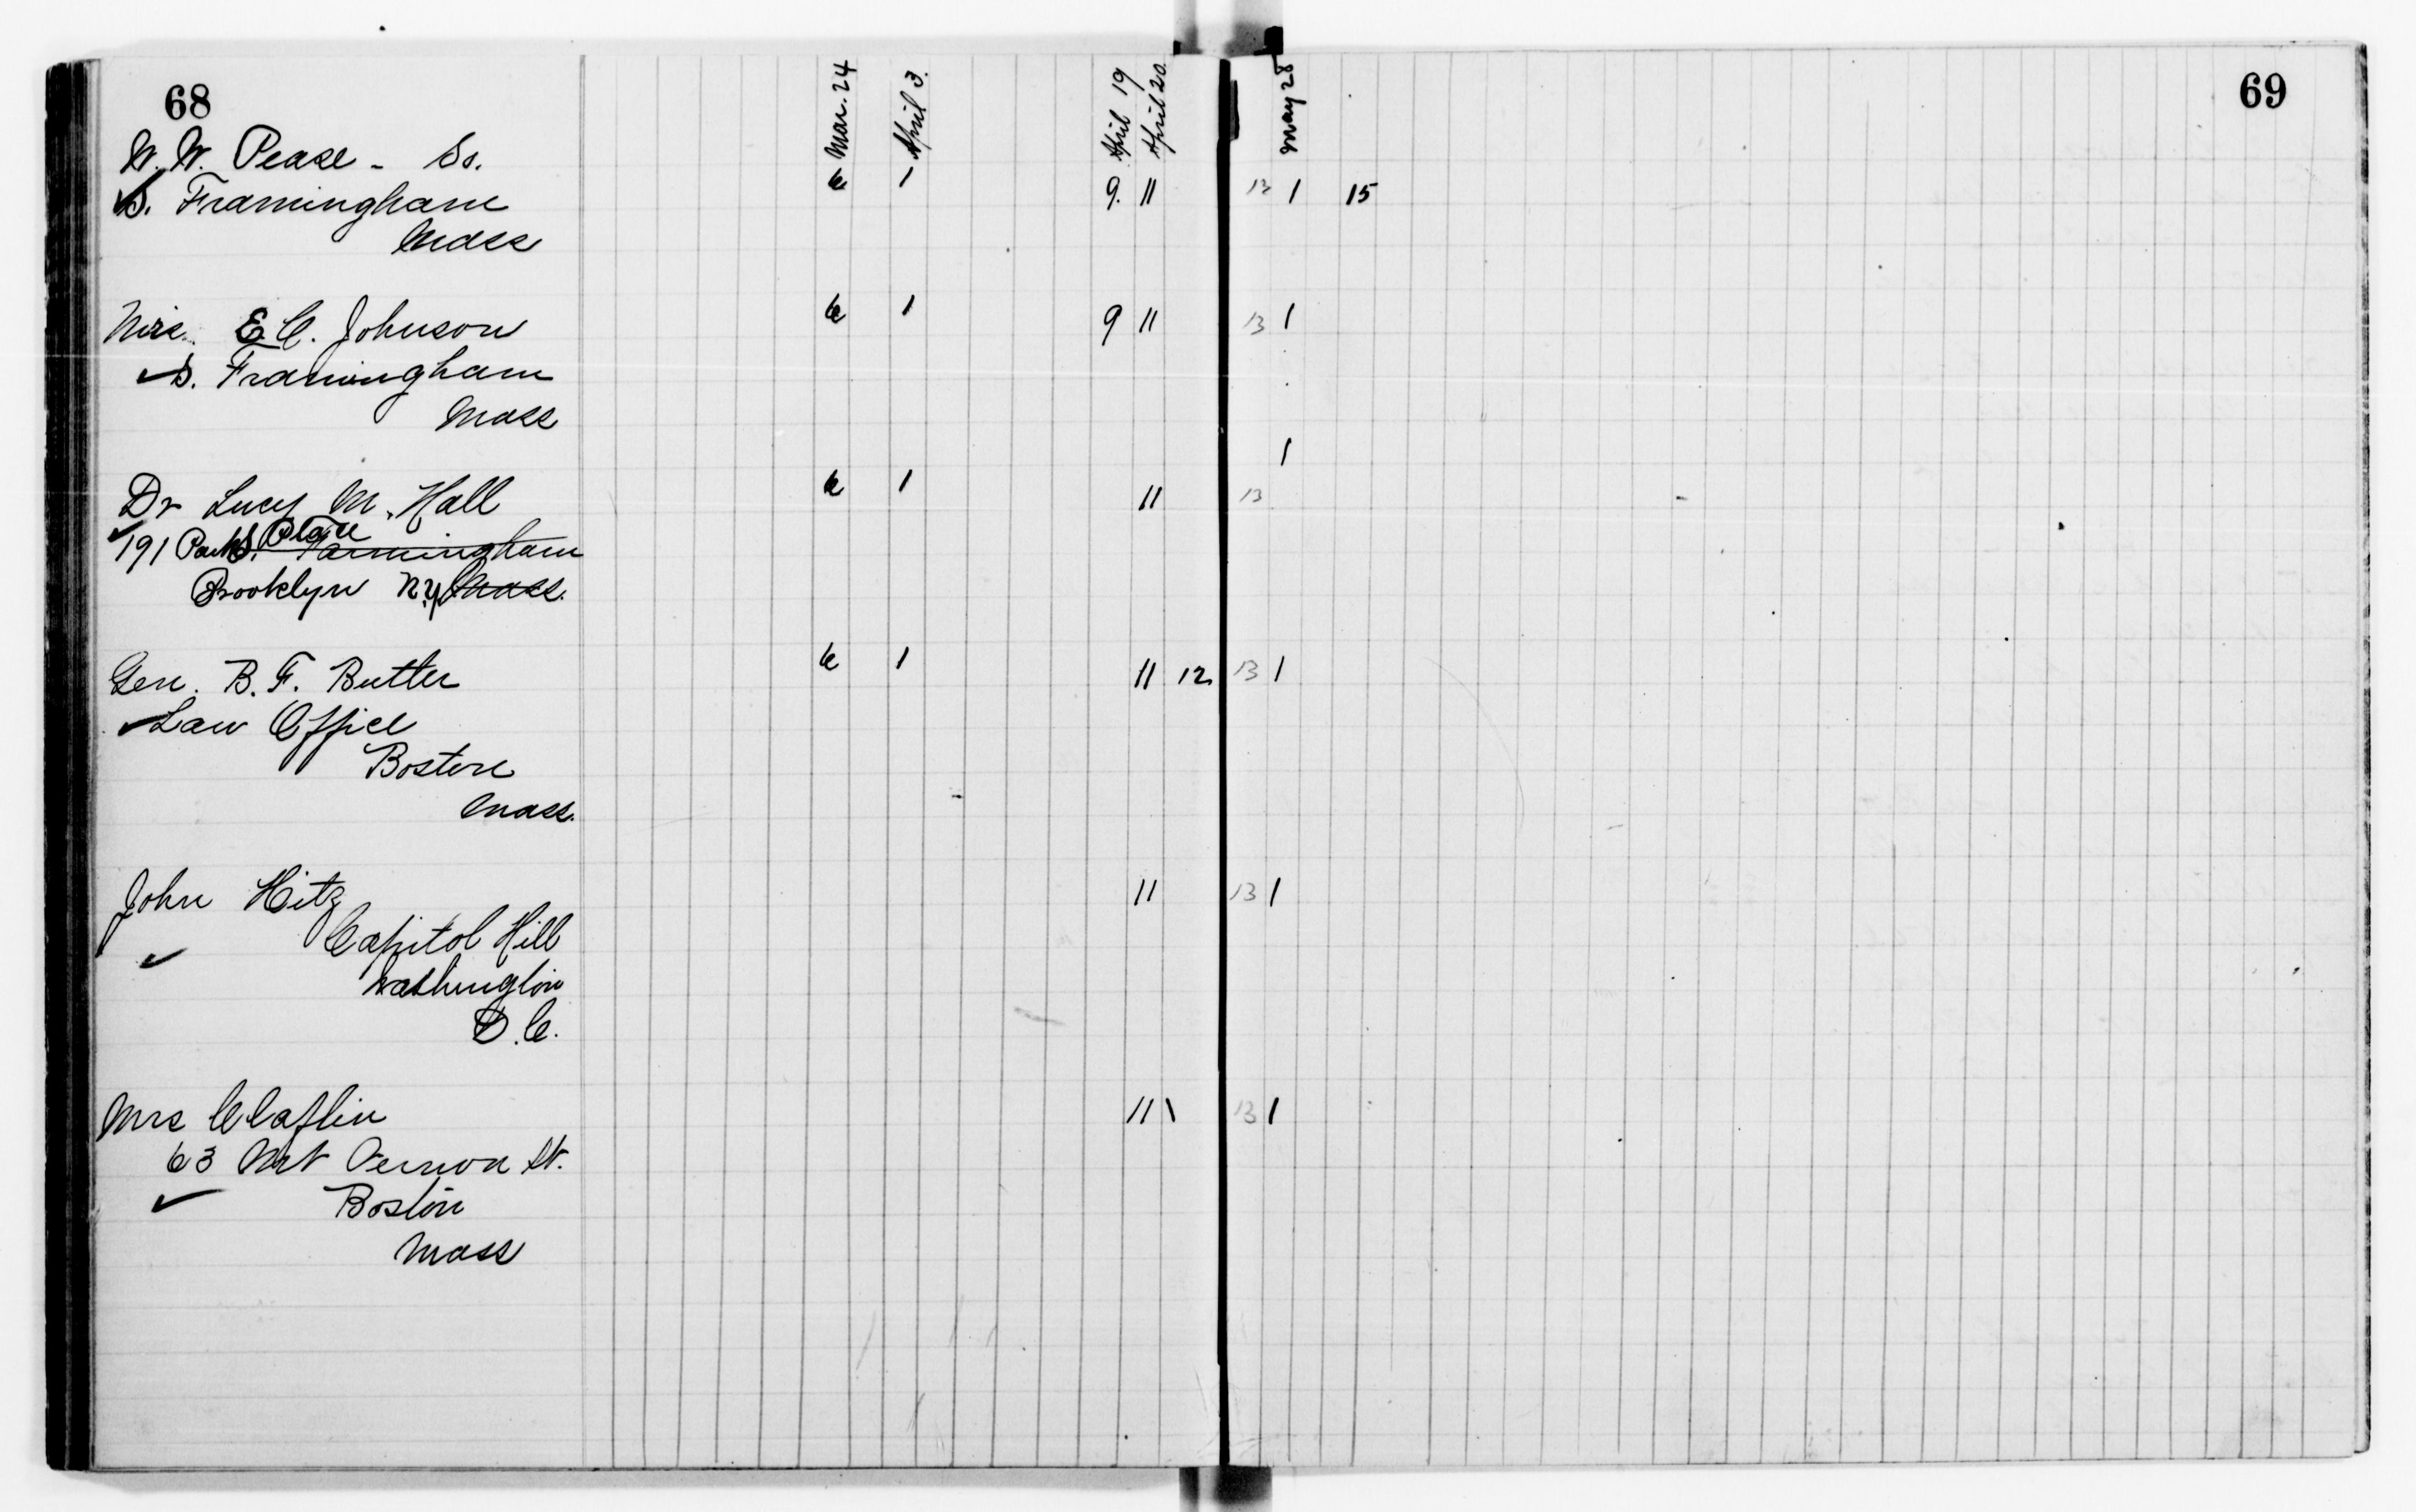 68
69
Mar. 24
April 3.
April 19
April 20
May 28
W. W. Pease -
6 - 9. 11 13 1 15
S. Framingham
Mass
Mrs. E. C. Johnson
6 1 9 11 13 1
S. Framingham
Mass
1
Dr Lucy M. Hall
6 1 11 13
Place
191 Park S. Farmingham
Brooklyn N.Y Mass.
Gen. B. F. Butler
6 1 11 12 13 1
Law Office
Boston
Mass.
John Hitz
11 13 1
Capitol Hill
Washington
D.C.
Mrs Claflin
11 \ 13 1
63 Mt Vernon St.
Boston
Mass